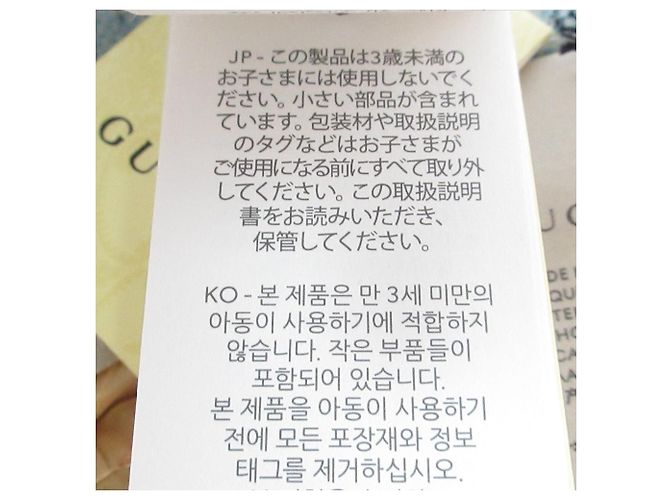 JP - この製品は3歳未満の
お子さまには使用しないでく
ださい。小さい部品が含まれ
ています。包装材や取扱説明
のタグなどはお子さまが
ご使用になる前にすべて取り外
してください。この取扱説明
書をお読みいただき、
保管してください。
KO - 본 제품은 만 3세 미만의
아동이 사용하기에 적합하지
않습니다. 작은 부품들이
포함되어 있습니다.
본 제품을 아동이 사용하기
전에 모든 포장재와 정보
태그를 제거하십시오.
GU
UC
DE
QU
TE
HO
CA